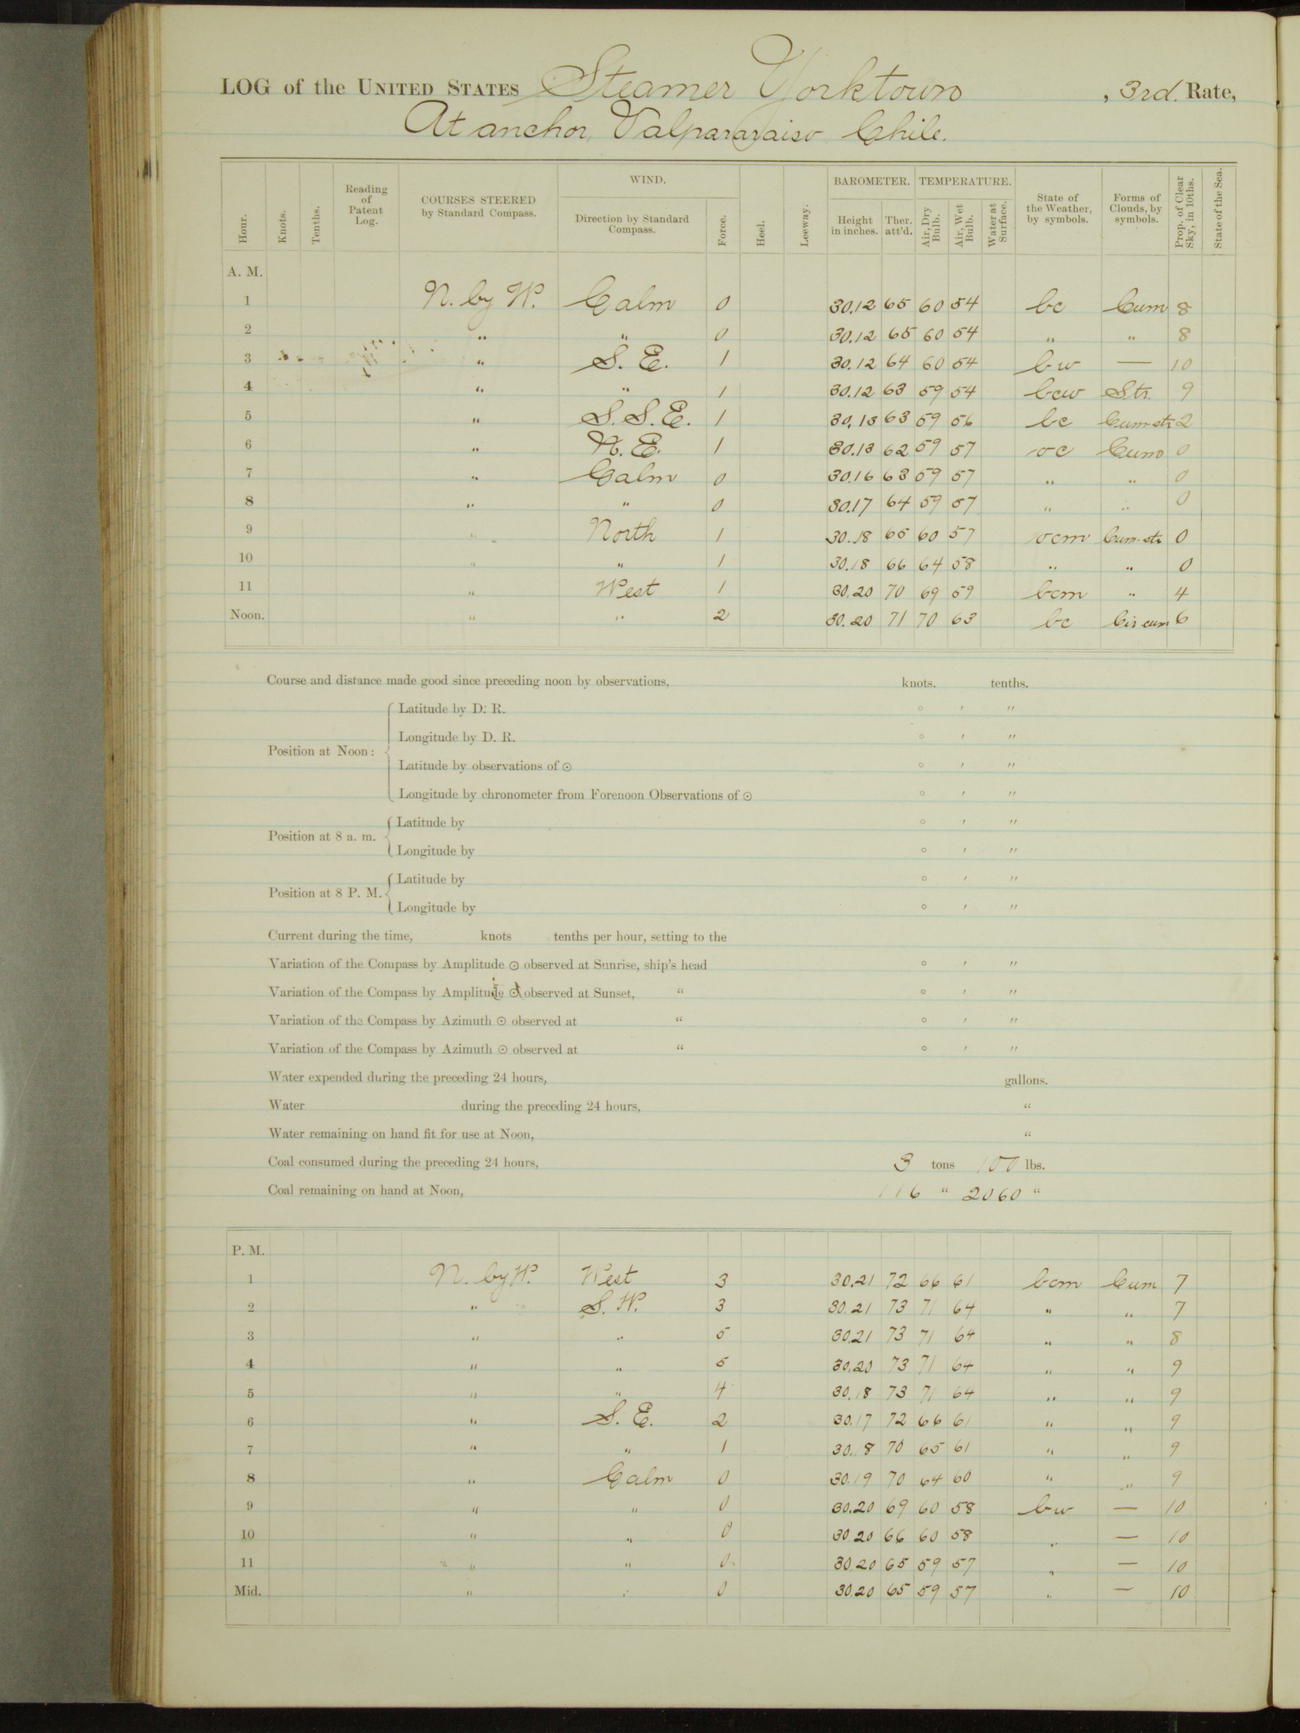 LOG of the UNITED STATES Steamer Yorktown, 3rd. Rate,
At anchor, Valpararaiso Chile.
Hour. Knots. Tenths. Reading of Patent Log. COURSES STEERED by Standard Compass. WIND. Direction by Standard Compass. Force. Heel. Leeway. BAROMETER. Height in inches. Ther. att'd. TEMPERATURE. Air, Dry Bulb. Air, Wet Bulb. Water at Surface. State of the Weather, by symbols. Forms of Clouds, by symbols. Prop. of Clear Sky, in 10ths. State of the Sea.
A. M.
1 N. by W. Calm 0 30.12 65 60 54 bc Cum 8
2 " " 0 30.12 65 60 54 " " 8
3 " S. E. 1 30.12 64 60 54 bw — 10
4 " " 1 30.12 63 59 54 bcw Str. 9
5 " S. S. E. 1 30.13 63 59 56 bc Cum-str 2
6 " N. E. 1 30.13 62 59 57 oc Cum 0
7 " Calm 0 30.16 63 59 57 " " 0
8 " " 0 30.17 64 59 57 " " 0
9 " North 1 30.18 65 60 57 ocm Cum-str 0
10 " " 1 30.18 66 64 58 " " 0
11 " West 1 30.20 70 69 59 bcm " 4
Noon. " " 2 30.20 71 70 63 bc Cir cum 6
Course and distance made good since preceding noon by observations, knots. tenths.
Position at Noon: Latitude by D. R. ° ′ ″
Longitude by D. R. ° ′ ″
Latitude by observations of ☉ ° ′ ″
Longitude by chronometer from Forenoon Observations of ☉ ° ′ ″
Position at 8 a. m. Latitude by ° ′ ″
Longitude by ° ′ ″
Position at 8 P. M. Latitude by ° ′ ″
Longitude by ° ′ ″
Current during the time, knots tenths per hour, setting to the
Variation of the Compass by Amplitude ☉ observed at Sunrise, ship's head ° ′ ″
Variation of the Compass by Amplitude ☉ observed at Sunset, " ° ′ ″
Variation of the Compass by Azimuth ☉ observed at " ° ′ ″
Variation of the Compass by Azimuth ☉ observed at " ° ′ ″
Water expended during the preceding 24 hours, gallons.
Water during the preceding 24 hours, "
Water remaining on hand fit for use at Noon, "
Coal consumed during the preceding 24 hours, 3 tons 100 lbs.
Coal remaining on hand at Noon, 116 " 2060 "
P. M.
1 N. by W. West 3 30.21 72 66 61 bcm Cum 7
2 " S. W. 3 30.21 73 71 64 " " 7
3 " " 5 30.21 73 71 64 " " 8
4 " " 5 30.20 73 71 64 " " 9
5 " " 4 30.18 73 71 64 " " 9
6 " S. E. 2 30.17 72 66 61 " " 9
7 " " 1 30.18 70 65 61 " " 9
8 " Calm 0 30.19 70 64 60 " " 9
9 " " 0 30.20 69 60 58 bw — 10
10 " " 0 30.20 66 60 58 " — 10
11 " " 0 30.20 65 59 57 " — 10
Mid. " " 0 30.20 65 59 57 " — 10